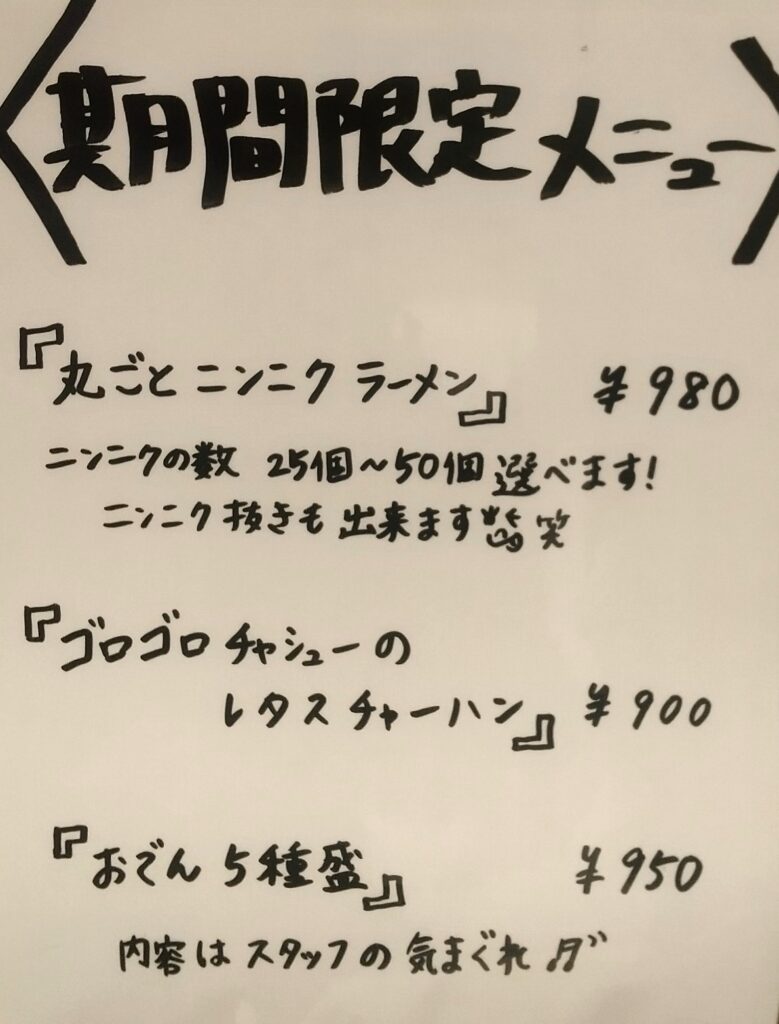 〈期間限定メニュー〉
『丸ごとニンニクラーメン』 ¥980
ニンニクの数 25個～50個選べます!
ニンニク抜きも出来ます 笑
『ゴロゴロチャシューの
レタスチャーハン』 ¥900
『おでん5種盛』 ¥950
内容はスタッフの気まぐれ♬